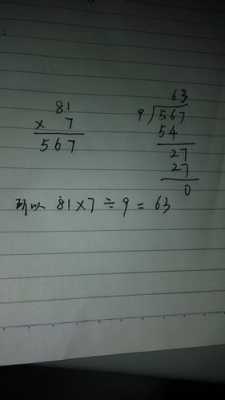 81
× 7
567
63
9)567
54
27
27
0
所以 81×7÷9=63